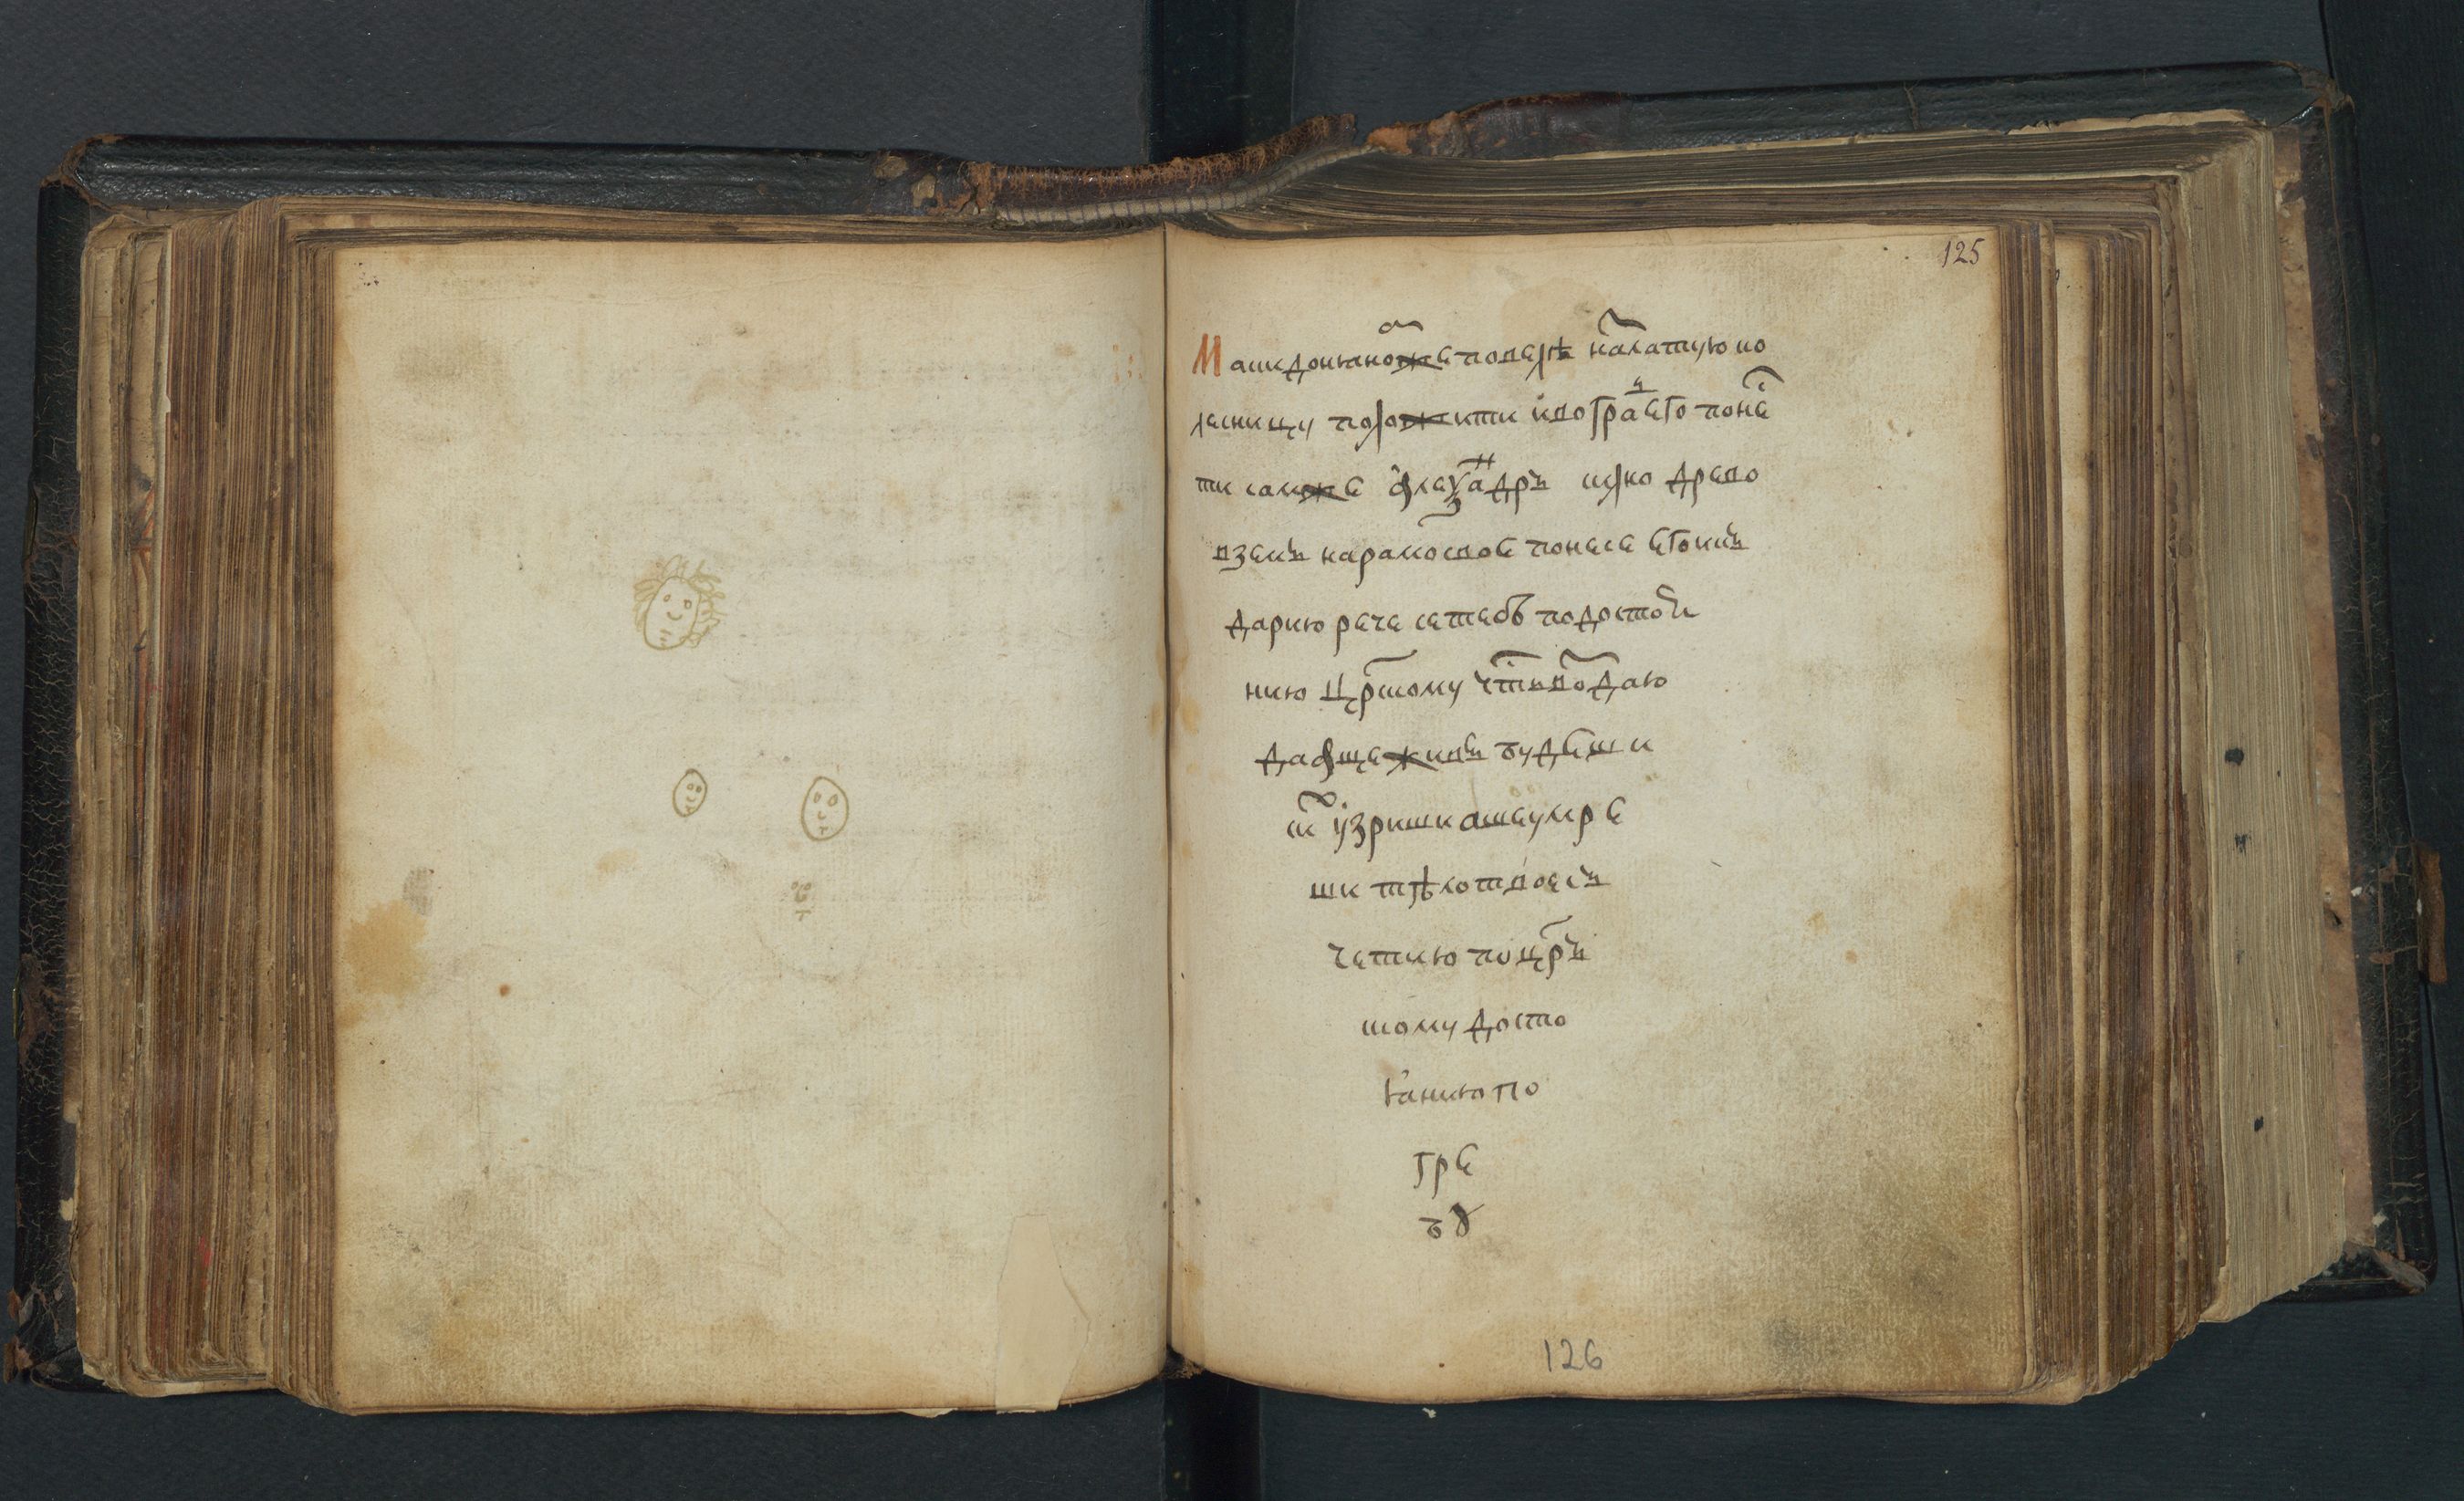 125
Македоняном же повелѣ на златую ко
лесницу положити и во град его понес
ти сам же Алеѯандръ яко древо
взем на рамо свое понесе его къ
Дарию рече се тебѣ по достоя
нию цр҃скому чт҃ь воздаю
да аще живъ будеши
и ст҃ узриши аще умре
ши тѣло твое съ
честию по цр҃ь
скому досто
янию по
гре
бꙋ
126